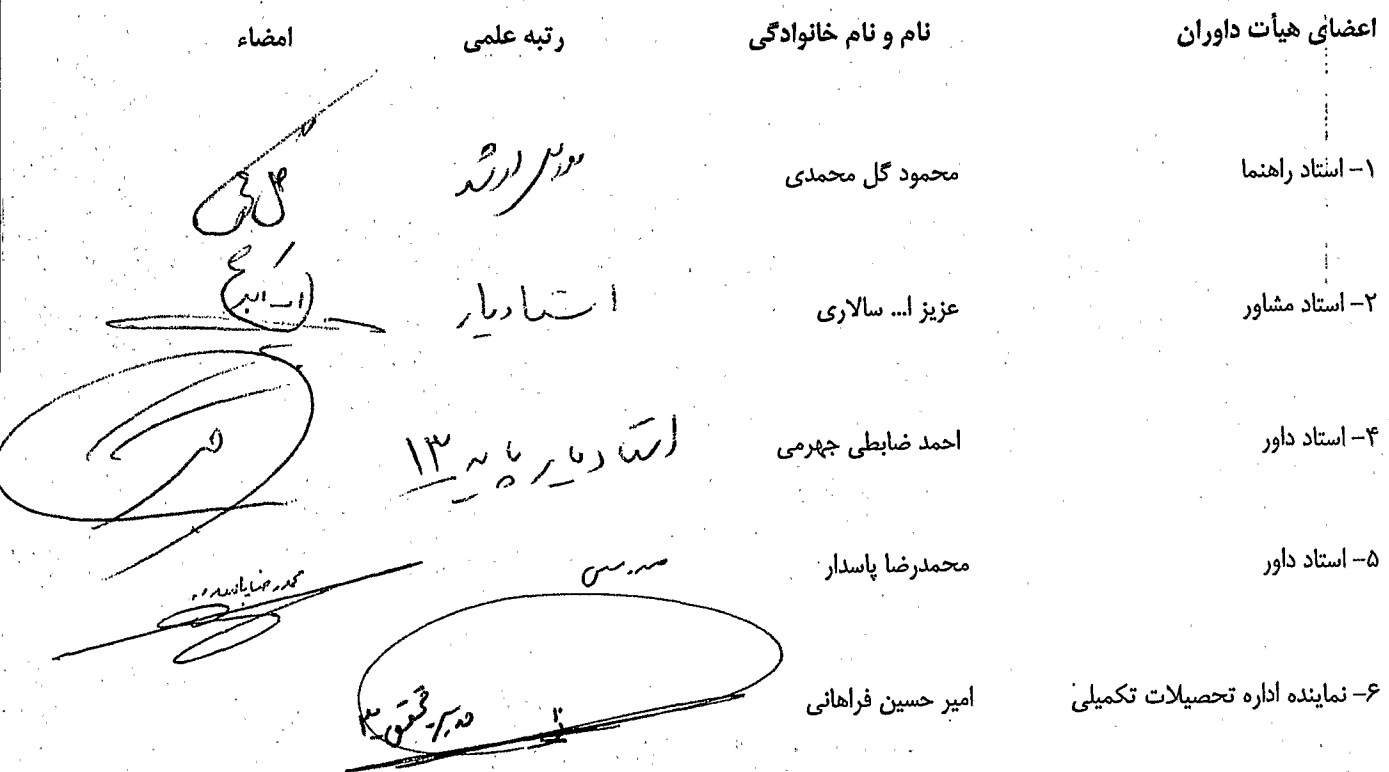 اعضای هیأت داوران نام و نام خانوادگی رتبه علمی امضاء
۱- استاد راهنما محمود گل محمدی مدرس ارشد
۲- استاد مشاور عزیز ا... سالاری استادیار
۴- استاد داور احمد ضابطی جهرمی استادیار پایه ۱۳
۵- استاد داور محمدرضا پاسدار مدرس محمدرضا پاسدار
۶- نماینده اداره تحصیلات تکمیلی امیر حسین فراهانی